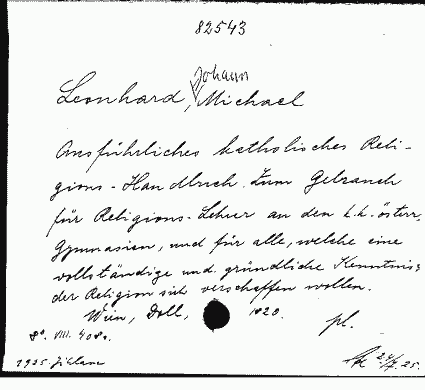 82543
Johann
Leonhard, Michael
Ausführliches katholisches Reli-
gions-Handbuch. Zum Gebrauch
für Religions-Lehrer an den k.k. österr.
Gymnasien, und für alle, welche eine
vollständige und gründliche Kenntnis
der Religion sich verschaffen wollen.
Wien, Doll, 1820.
8°. VIII. 408 S. pl.
1925. 24/7. 25.